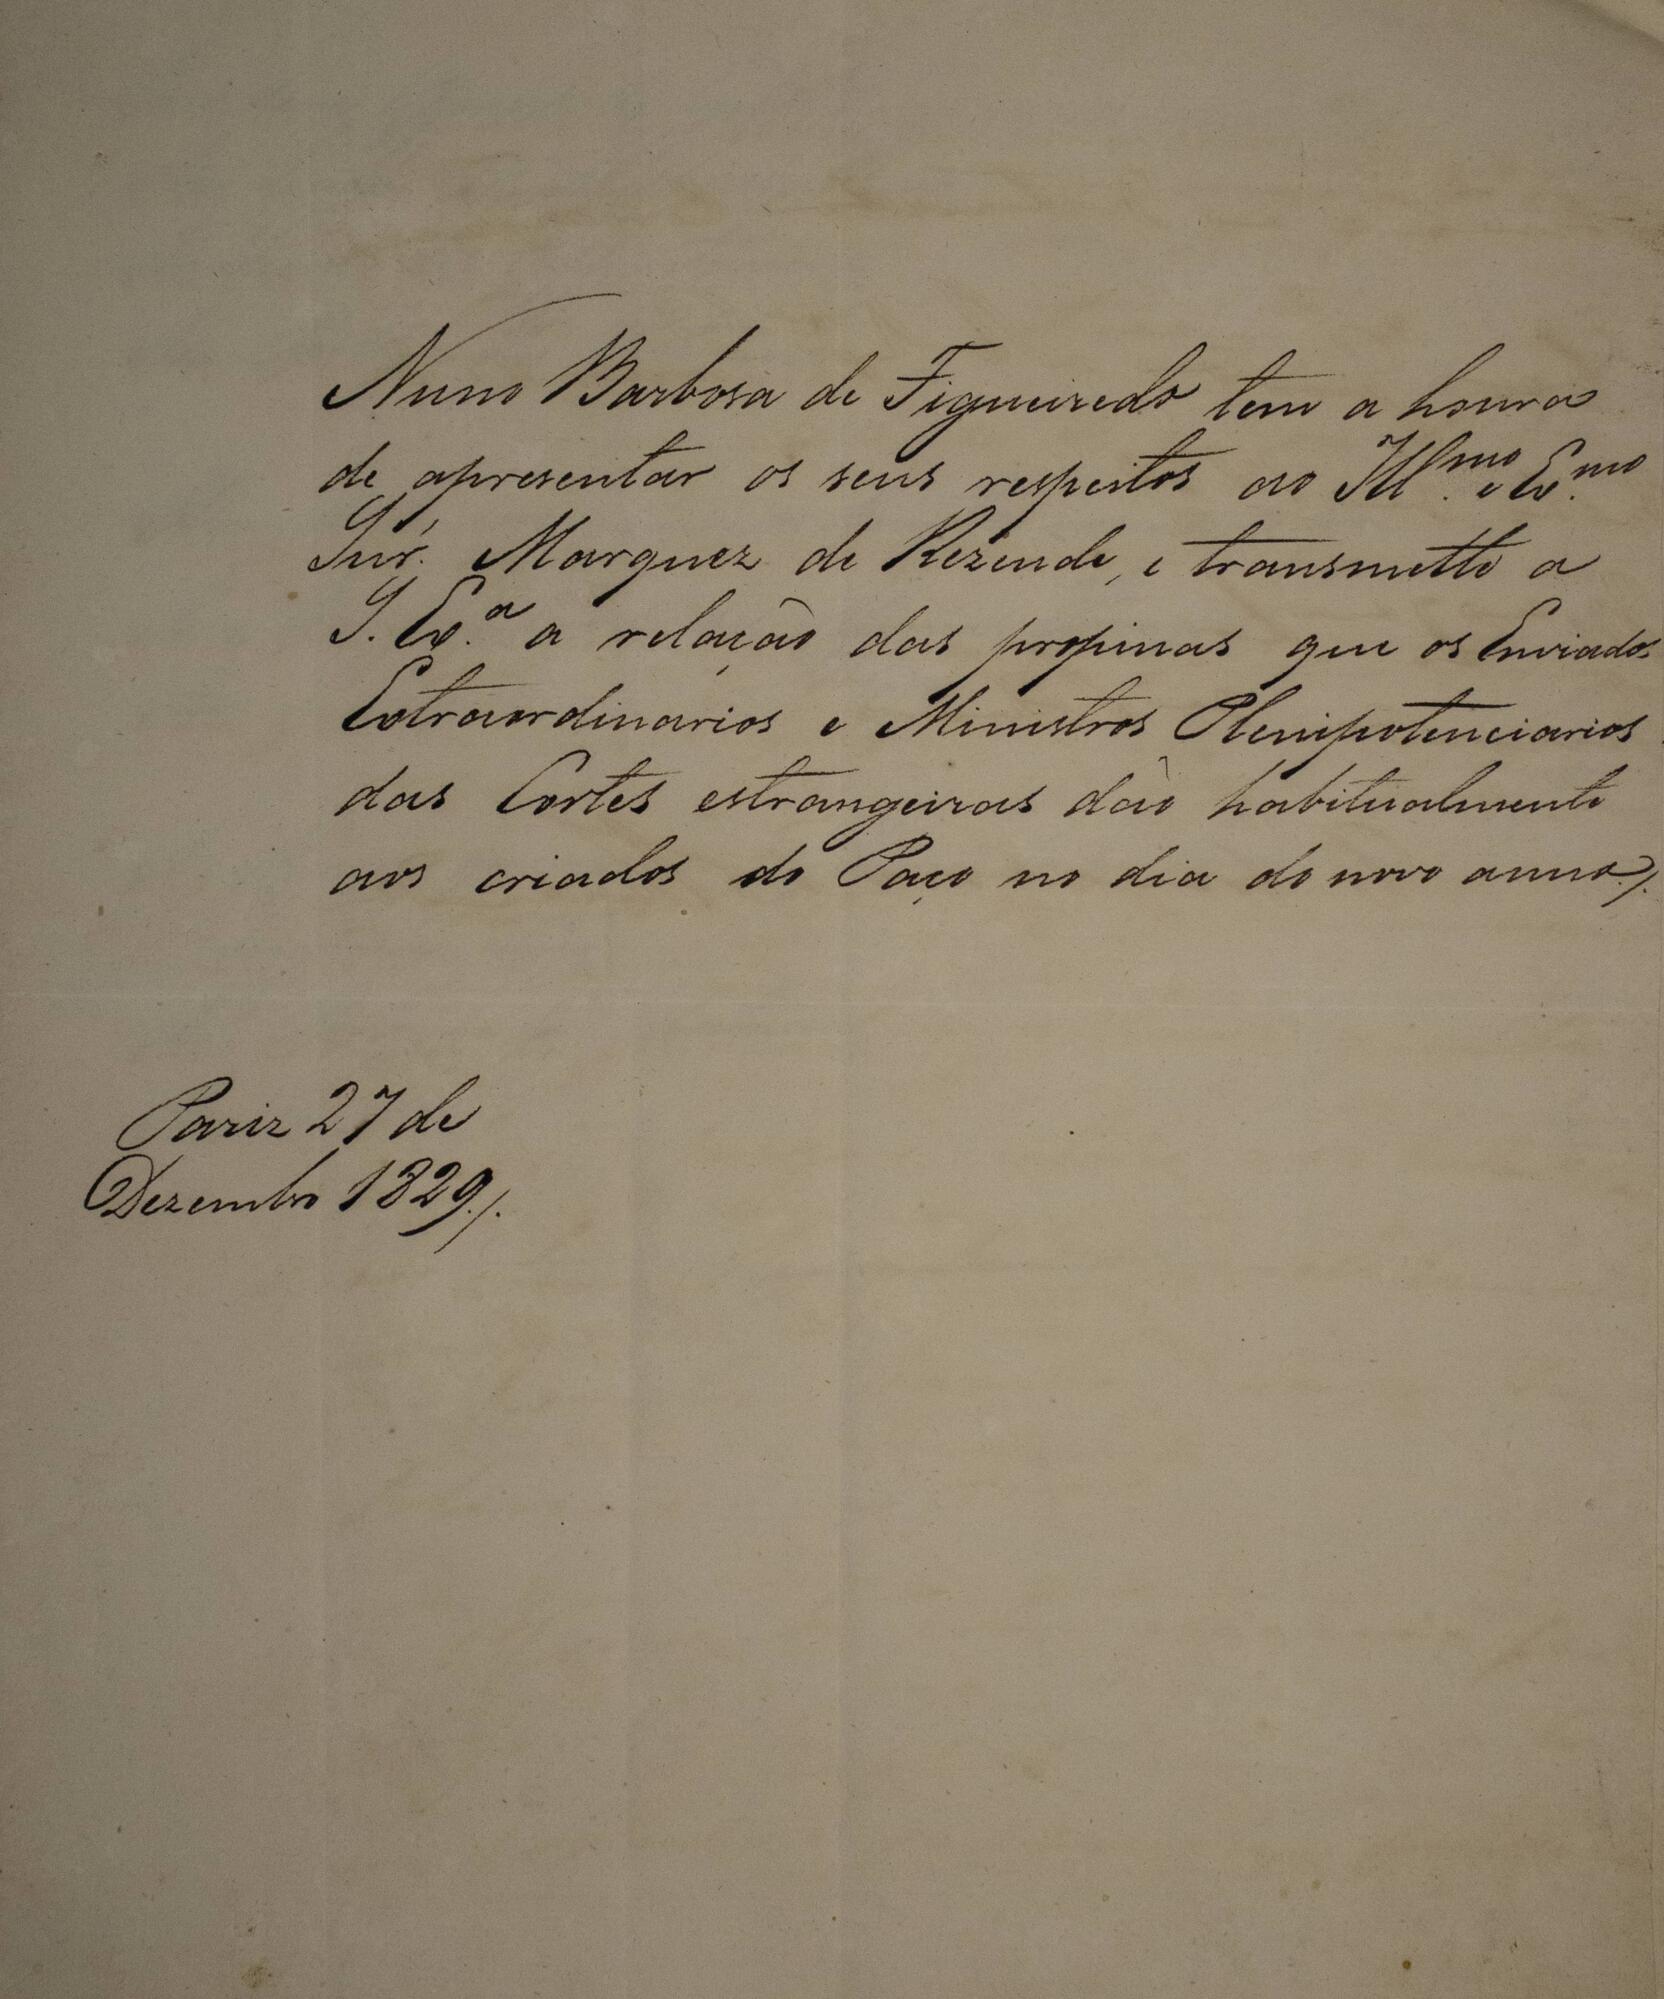 Nuno Barbosa de Figueiredo tem a honra
de apresentar os seus respeitos ao Ill.mo e Ex.mo
Snr. Marquez de Rezende, e transmette a
S. Ex.a a relação das propinas que os Enviados
Extraordinarios e Ministros Plenipotenciarios
das Cortes estrangeiras dão habitualmente
aos criados do Paço no dia do novo anno./.
Pariz 27 de
Dezembro 1829./.